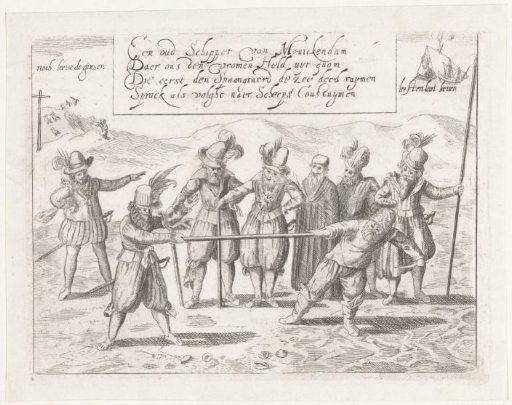 Een oud Schipper van Monickendam
Daer ons den Vromen Held uyt quam
Die eerst den Spaengiaerd de Zee deed ruymen
Sprack als volght naer Scheeps Coustuymen
noch leeve de geusen